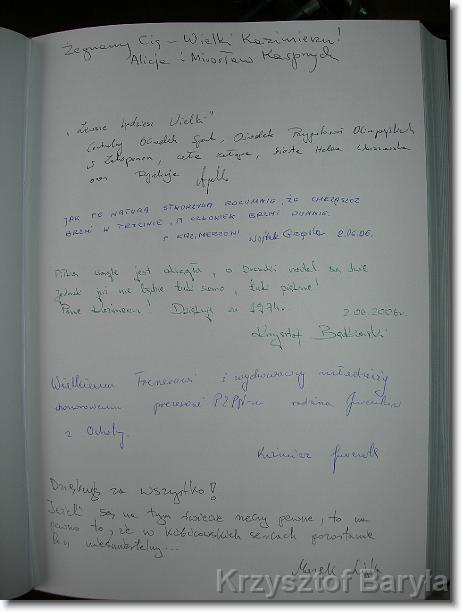 Żegnamy Cię – Wielki Kazimierzu!
Alicja i Mirosław Kasprzych
"Zawsze będziesz Wielki"
Centralny Ośrodek Sportu, Ośrodek Przygotowań Olimpijskich
w Zakopanem, cała załoga, siostra Helena Warszawska
oraz Dyrekcja
JAK TO NATURA STWORZYŁA ROZUMNIE, ŻE CHRZĄSZCZ
BRZMI W TRZCINIE, A CZŁOWIEK BRZMI DUMNIE.
KAZIMIERZOWI Wojtek 2.06.06.
Piłka nadal jest okrągła, a bramki nadal są dwie
jednak już nie będzie tak samo, tak pięknie!
Panie Kazimierzu! Dziękuję za 1974r.
2.06.2006r.
Krzysztof
Wielkiemu Trenerowi i wychowawcy młodzieży
honorowemu prezesowi PZPN-u rodzina
z Ochoty.
Kazimierz
Dziękuję za wszystko!
Jeżeli są na tym świecie rzeczy pewne, to na
pewno to, że w kibicowskich sercach pozostanie
Pan nieśmiertelny...
Marek
Krzysztof Baryła